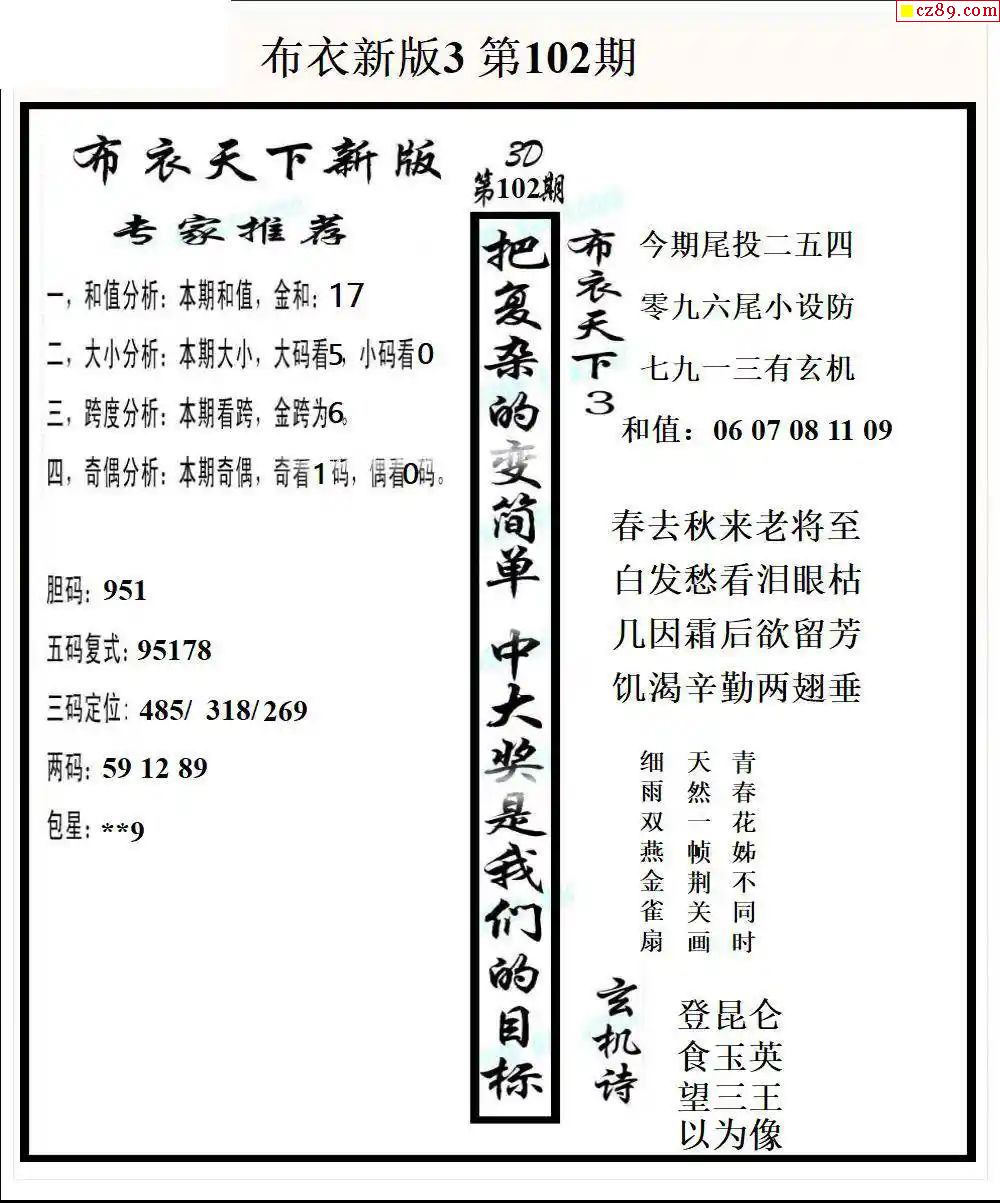 cz89.com
布衣新版3 第102期
布衣天下新版
专家推荐
一，和值分析：本期和值，金和：17
二，大小分析：本期大小，大码看5，小码看0
三，跨度分析：本期看跨，金跨为6。
四，奇偶分析：本期奇偶，奇看1码，偶看0码。
胆码：951
五码复式：95178
三码定位：485/ 318/ 269
两码：59 12 89
包星：**9
3D
第102期
把复杂的变简单 中大奖是我们的目标
布衣天下3
今期尾投二五四
零九六尾小设防
七九一三有玄机
和值：06 07 08 11 09
春去秋来老将至
白发愁看泪眼枯
几因霜后欲留芳
饥渴辛勤两翅垂
青春花姊不同时
天然一帧荆关画
细雨双燕金雀扇
玄机诗
登昆仑
食玉英
望三王
以为像